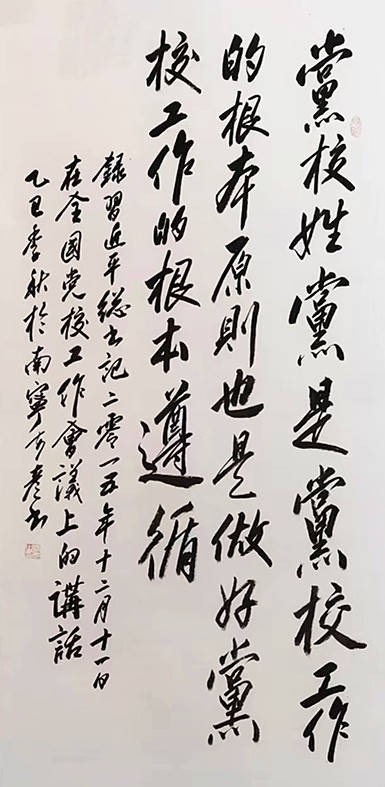 黨校姓黨是黨校工作
的根本原則也是做好黨
校工作的根本遵循
錄習近平總書記二零一五年十二月十一日
在全國党校工作會議上的講話
乙丑季秋於南寧